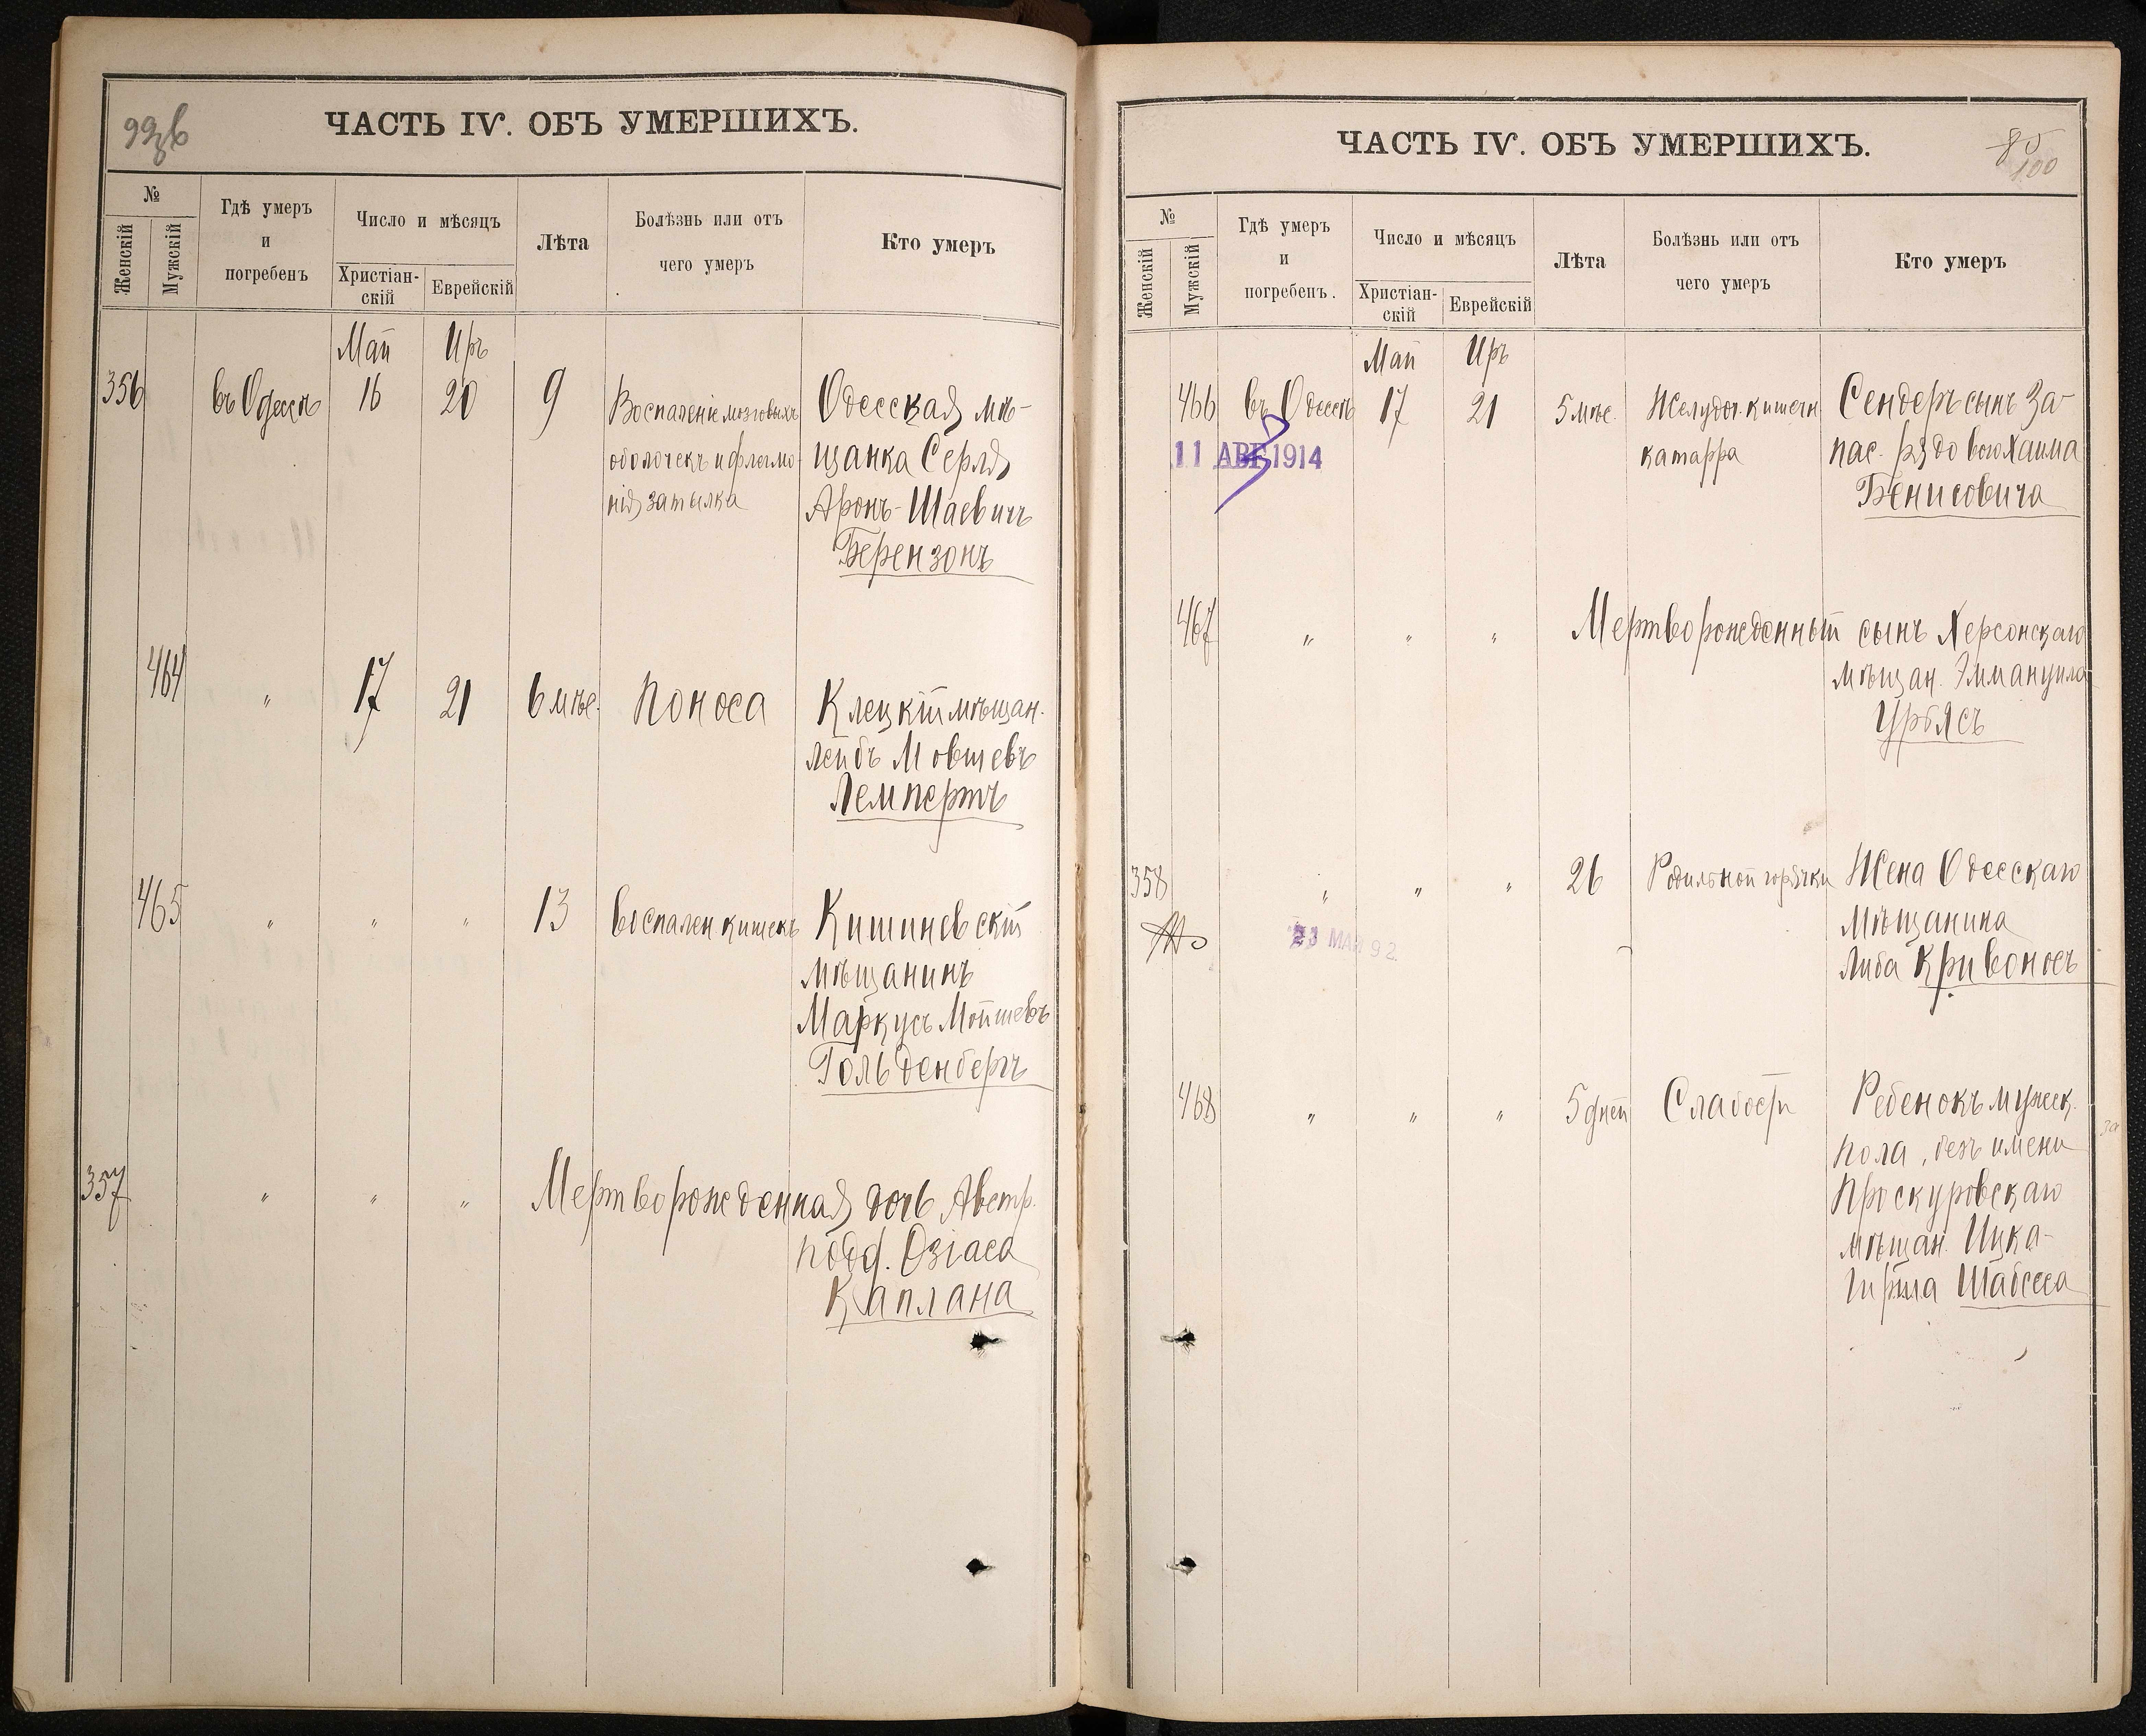 ЧАСТЬ IV. ОБЪ УМЕРШИХЪ.
№
Женскій
Мужскій
Гдѣ умеръ
и
погребенъ
Число и мѣсяцъ
Христіан-
скій
Еврейскій
Лѣта
Болѣзнь или отъ
чего умеръ
Кто умеръ
Май Иръ
356 въ Одессѣ 16 20 9 Воспаленіе мозговыхъ Одесская мѣ-
оболочекъ и флегмо- щанка Серля
нія затылка Аронъ-Шаевичъ
Берензонъ
464 " 17 21 6 мѣс. Поноса Клецкій мѣщан.
Лейбъ Мовшевъ
Лемпертъ
465 " " " 13 Воспален. кишекъ Кишиневскій
мѣщанинъ
Маркусъ Мойшевъ
Гольденбергъ
357 " " " Мертворожденная дочь Австр.
подд. Озіаса
Каплана
ЧАСТЬ IV. ОБЪ УМЕРШИХЪ.
85
100
№
Женскій
Мужскій
Гдѣ умеръ
и
погребенъ.
Число и мѣсяцъ
Христіан-
скій
Еврейскій
Лѣта
Болѣзнь или отъ
чего умеръ
Кто умеръ
Май Иръ
466 въ Одессѣ 17 21 5 мѣс. Желудоч. кишечн. Сендеръ сынъ За-
11 АВГ 1914 катарра пас. рядового Хаима
Бенисовича
467 " " " Мертворожденный сынъ Херсонскаго
мѣщан. Эммануила
Урбясъ
358 " " " 26 Родильной горячки Жена Одесскаго
23 МАЙ 92. мѣщанина
Либа Кривоносъ
468 " " " 5 дней Слабости Ребенокъ мужеск.
пола, безъ имени
Проскуровскаго
мѣщан. Ицка-
Шабсеса